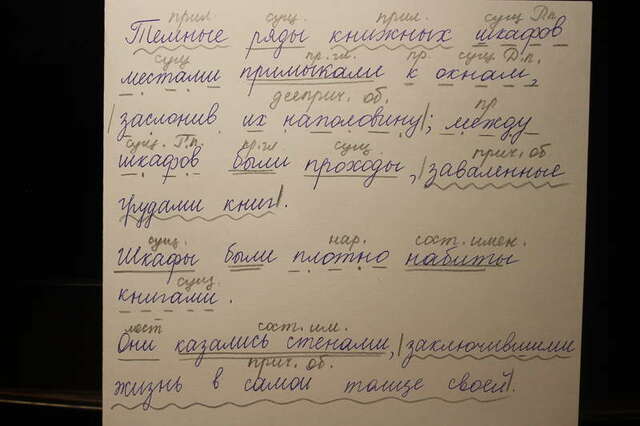 прил. сущ. прил. сущ. Р.п.
Темные ряды книжных шкафов
сущ. пр. гл. пр. сущ. Д.п.
местами примыкали к окнам,
дееприч. об. пр
заслонив их наполовину; между
сущ. Р.п. пр. гл. сущ. прич. об.
шкафов были проходы, заваленные
грудами книг.
сущ. нар. сост. имен.
Шкафы были плотно набиты
сущ.
книгами.
мест сост. им.
Они казались стенами, заключившими
прич. об.
жизнь в самой толще своей.